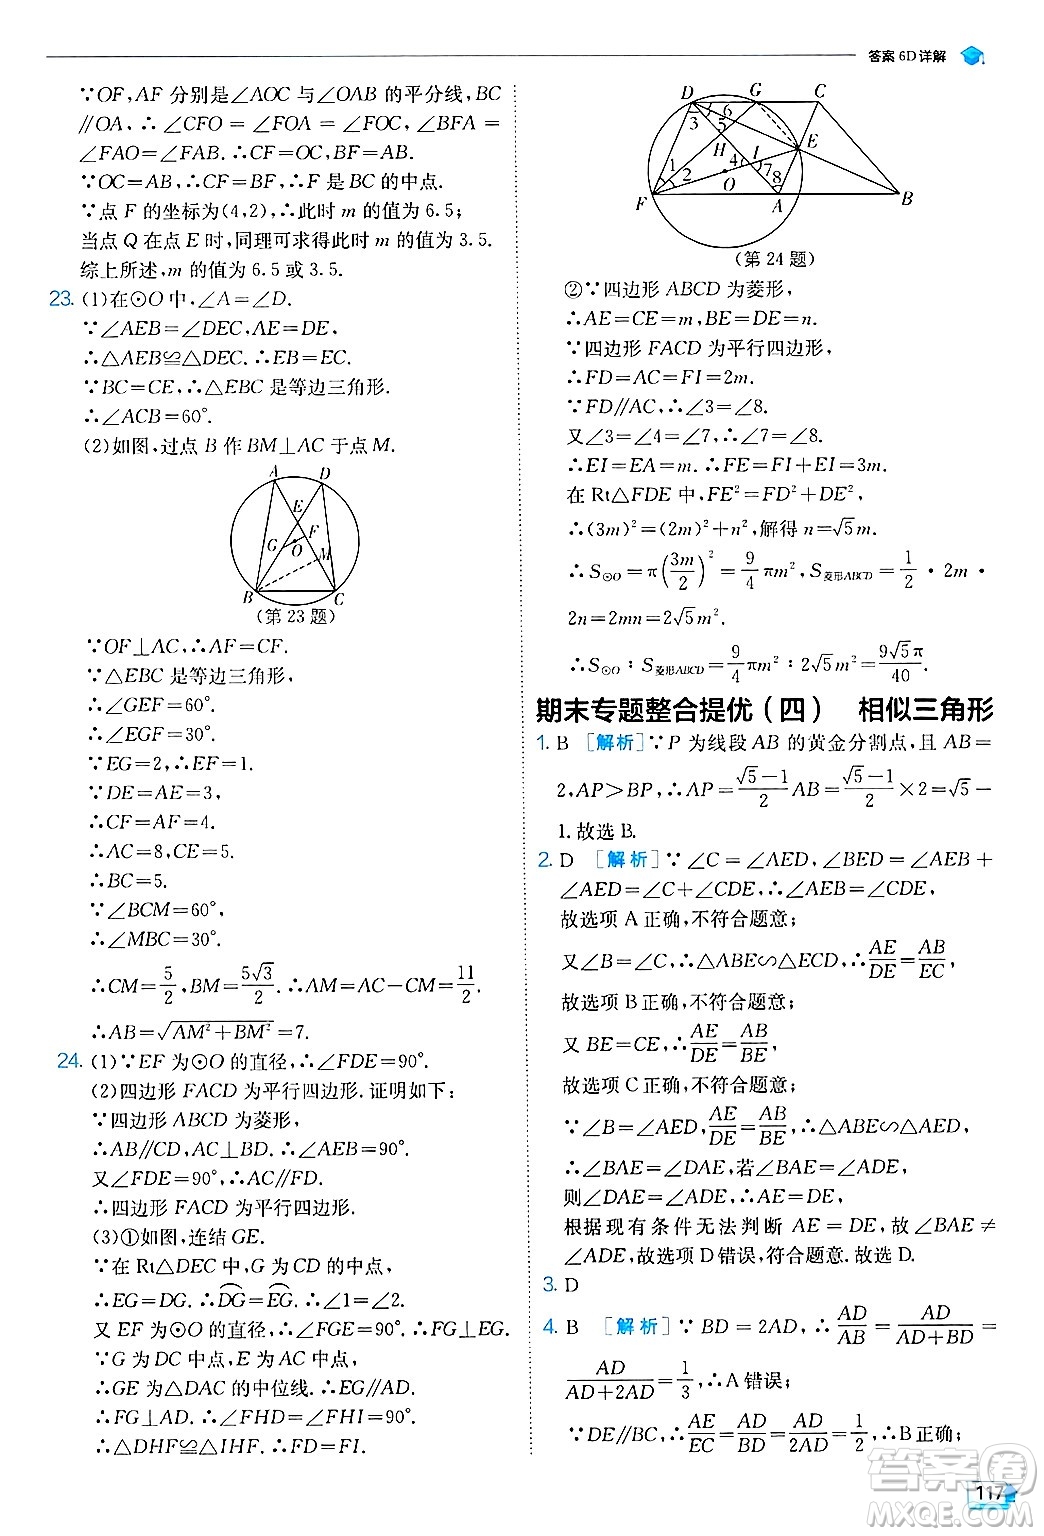 答案 6D详解
∵OF,AF 分别是∠AOC 与∠OAB 的平分线,BC
∥OA,∴∠CFO=∠FOA=∠FOC,∠BFA=
∠FAO=∠FAB.∴CF=OC,BF=AB.
∵OC=AB,∴CF=BF,∴F 是 BC 的中点.
∵点 F 的坐标为(4,2),∴此时 m 的值为 6.5;
当点 Q 在点 E 时,同理可求得此时 m 的值为 3.5.
综上所述,m 的值为 6.5 或 3.5.
23. (1)在⊙O 中,∠A=∠D.
∵∠AEB=∠DEC,AE=DE,
∴△AEB≌△DEC.∴EB=EC.
∵BC=CE,∴△EBC 是等边三角形.
∴∠ACB=60°.
(2)如图,过点 B 作 BM⊥AC 于点 M.
A D
E
F
G O
M
B C
(第 23 题)
∵OF⊥AC,∴AF=CF.
∵△EBC 是等边三角形,
∴∠GEF=60°.
∴∠EGF=30°.
∵EG=2,∴EF=1.
∵DE=AE=3,
∴CF=AF=4.
∴AC=8,CE=5.
∴BC=5.
∵∠BCM=60°,
∴∠MBC=30°.
∴CM=5/2,BM=5√3/2.∴AM=AC−CM=11/2.
∴AB=√(AM²+BM²)=7.
24. (1)∵EF 为⊙O 的直径,∴∠FDE=90°.
(2)四边形 FACD 为平行四边形.证明如下:
∵四边形 ABCD 为菱形,
∴AB∥CD,AC⊥BD.∴∠AEB=90°.
又∠FDE=90°,∴AC∥FD.
∴四边形 FACD 为平行四边形.
(3)①如图,连结 GE.
∵在 Rt△DEC 中,G 为 CD 的中点,
∴EG=DG.∴⌒DG=⌒EG.∴∠1=∠2.
又 EF 为⊙O 的直径,∴∠FGE=90°.∴FG⊥EG.
∵G 为 DC 中点,E 为 AC 中点,
∴GE 为△DAC 的中位线.∴EG∥AC.
∴FG⊥AD.∴∠FHD=∠FHI=90°.
∴△DHF≌△IHF.∴FD=FI.
D G C
3 6
5
E
H 4 I
7
1
2 O 8
F A B
(第 24 题)
②∵四边形 ABCD 为菱形,
∴AE=CE=m,BE=DE=n.
∵四边形 FACD 为平行四边形,
∴FD=AC=FI=2m.
∵FD∥AC,∴∠3=∠8.
又∠3=∠4=∠7,∴∠7=∠8.
∴EI=EA=m.∴FE=FI+EI=3m.
在 Rt△FDE 中,FE²=FD²+DE²,
∴(3m)²=(2m)²+n²,解得 n=√5m.
∴S⊙O=π(3m/2)²=9/4πm²,S菱形ABCD=1/2·2m·
2n=2mn=2√5m².
∴S⊙O∶S菱形ABCD=9/4πm²∶2√5m²=9√5π/40.
期末专题整合提优(四) 相似三角形
1. B [解析]∵P 为线段 AB 的黄金分割点,且 AB=
2,AP>BP,∴AP=(√5−1)/2 AB=(√5−1)/2×2=√5−
1.故选 B.
2. D [解析]∵∠C=∠AED,∠BED=∠AEB+
∠AED=∠C+∠CDE,∴∠AEB=∠CDE,
故选项 A 正确,不符合题意;
又∠B=∠C,∴△ABE∽△ECD,∴AE/DE=AB/EC,
故选项 B 正确,不符合题意;
又 BE=CE,∴AE/DE=AB/BE,
故选项 C 正确,不符合题意;
∵∠B=∠AED,AE/DE=AB/BE,∴△ABE∽△AED,
∴∠BAE=∠EAD,若∠BAE=∠ADE,
则∠DAE=∠ADE,∴AE=DE,
根据现有条件无法判断 AE=DE,故∠BAE≠
∠ADE,故选项 D 错误,符合题意.故选 D.
3. D
4. B [解析]∵BD=2AD,∴AD/AB=AD/(AD+BD)=
AD/(AD+2AD)=1/3,∴A 错误;
∵DE∥BC,∴AE/EC=AD/BD=AD/2AD=1/2,∴B 正确;
117
答案圈
MXQE.COM